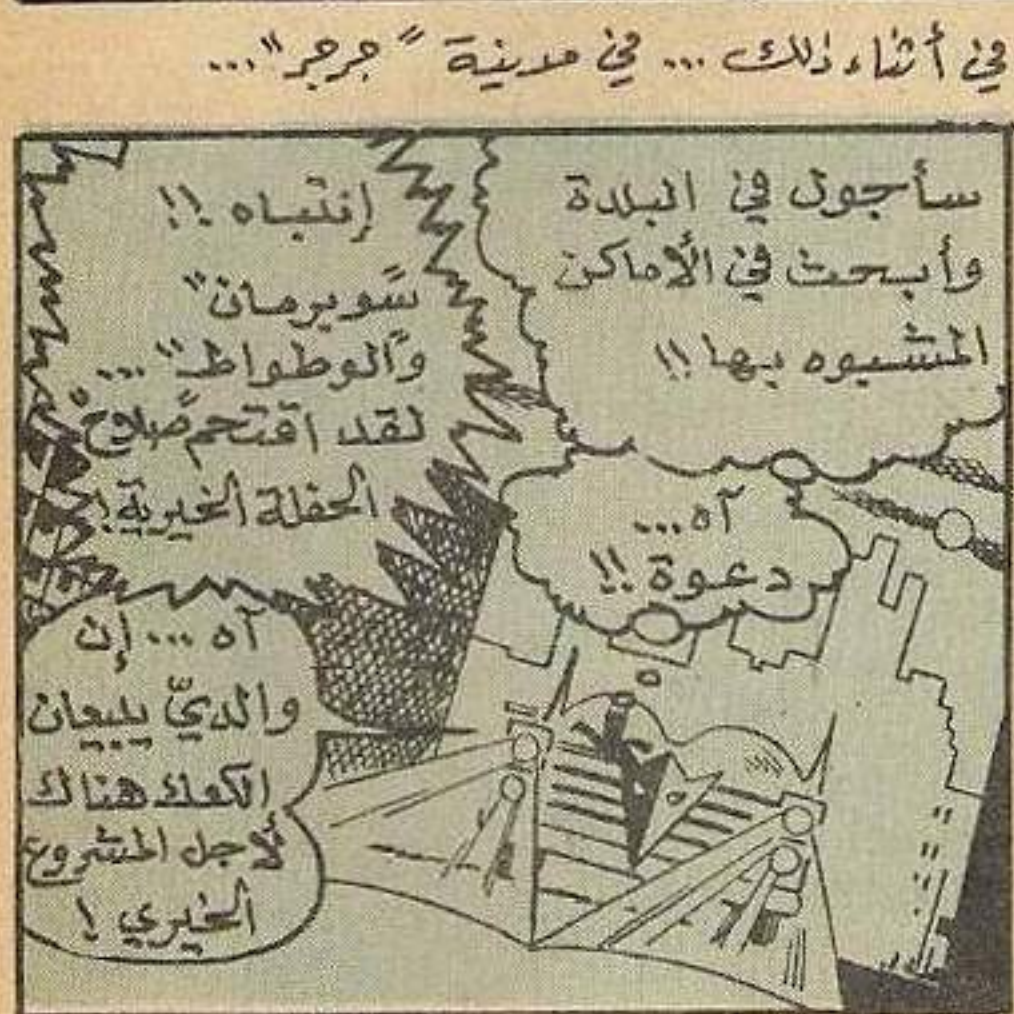 في أثناء ذلك ... في مدينة "جرجر"...
سأجول في البلدة
وأبحث في الأماكن
المشبوه بها !!
آه...
دعوة !!
إنتباه !!
"سوبرمان"
و"الوطواط" ...
لقد اقتحم "صلاح"
الحفلة الخيرية !
آه ... إن
والديّ يبيعان
الكعك هناك
لأجل المشروع
الخيري !